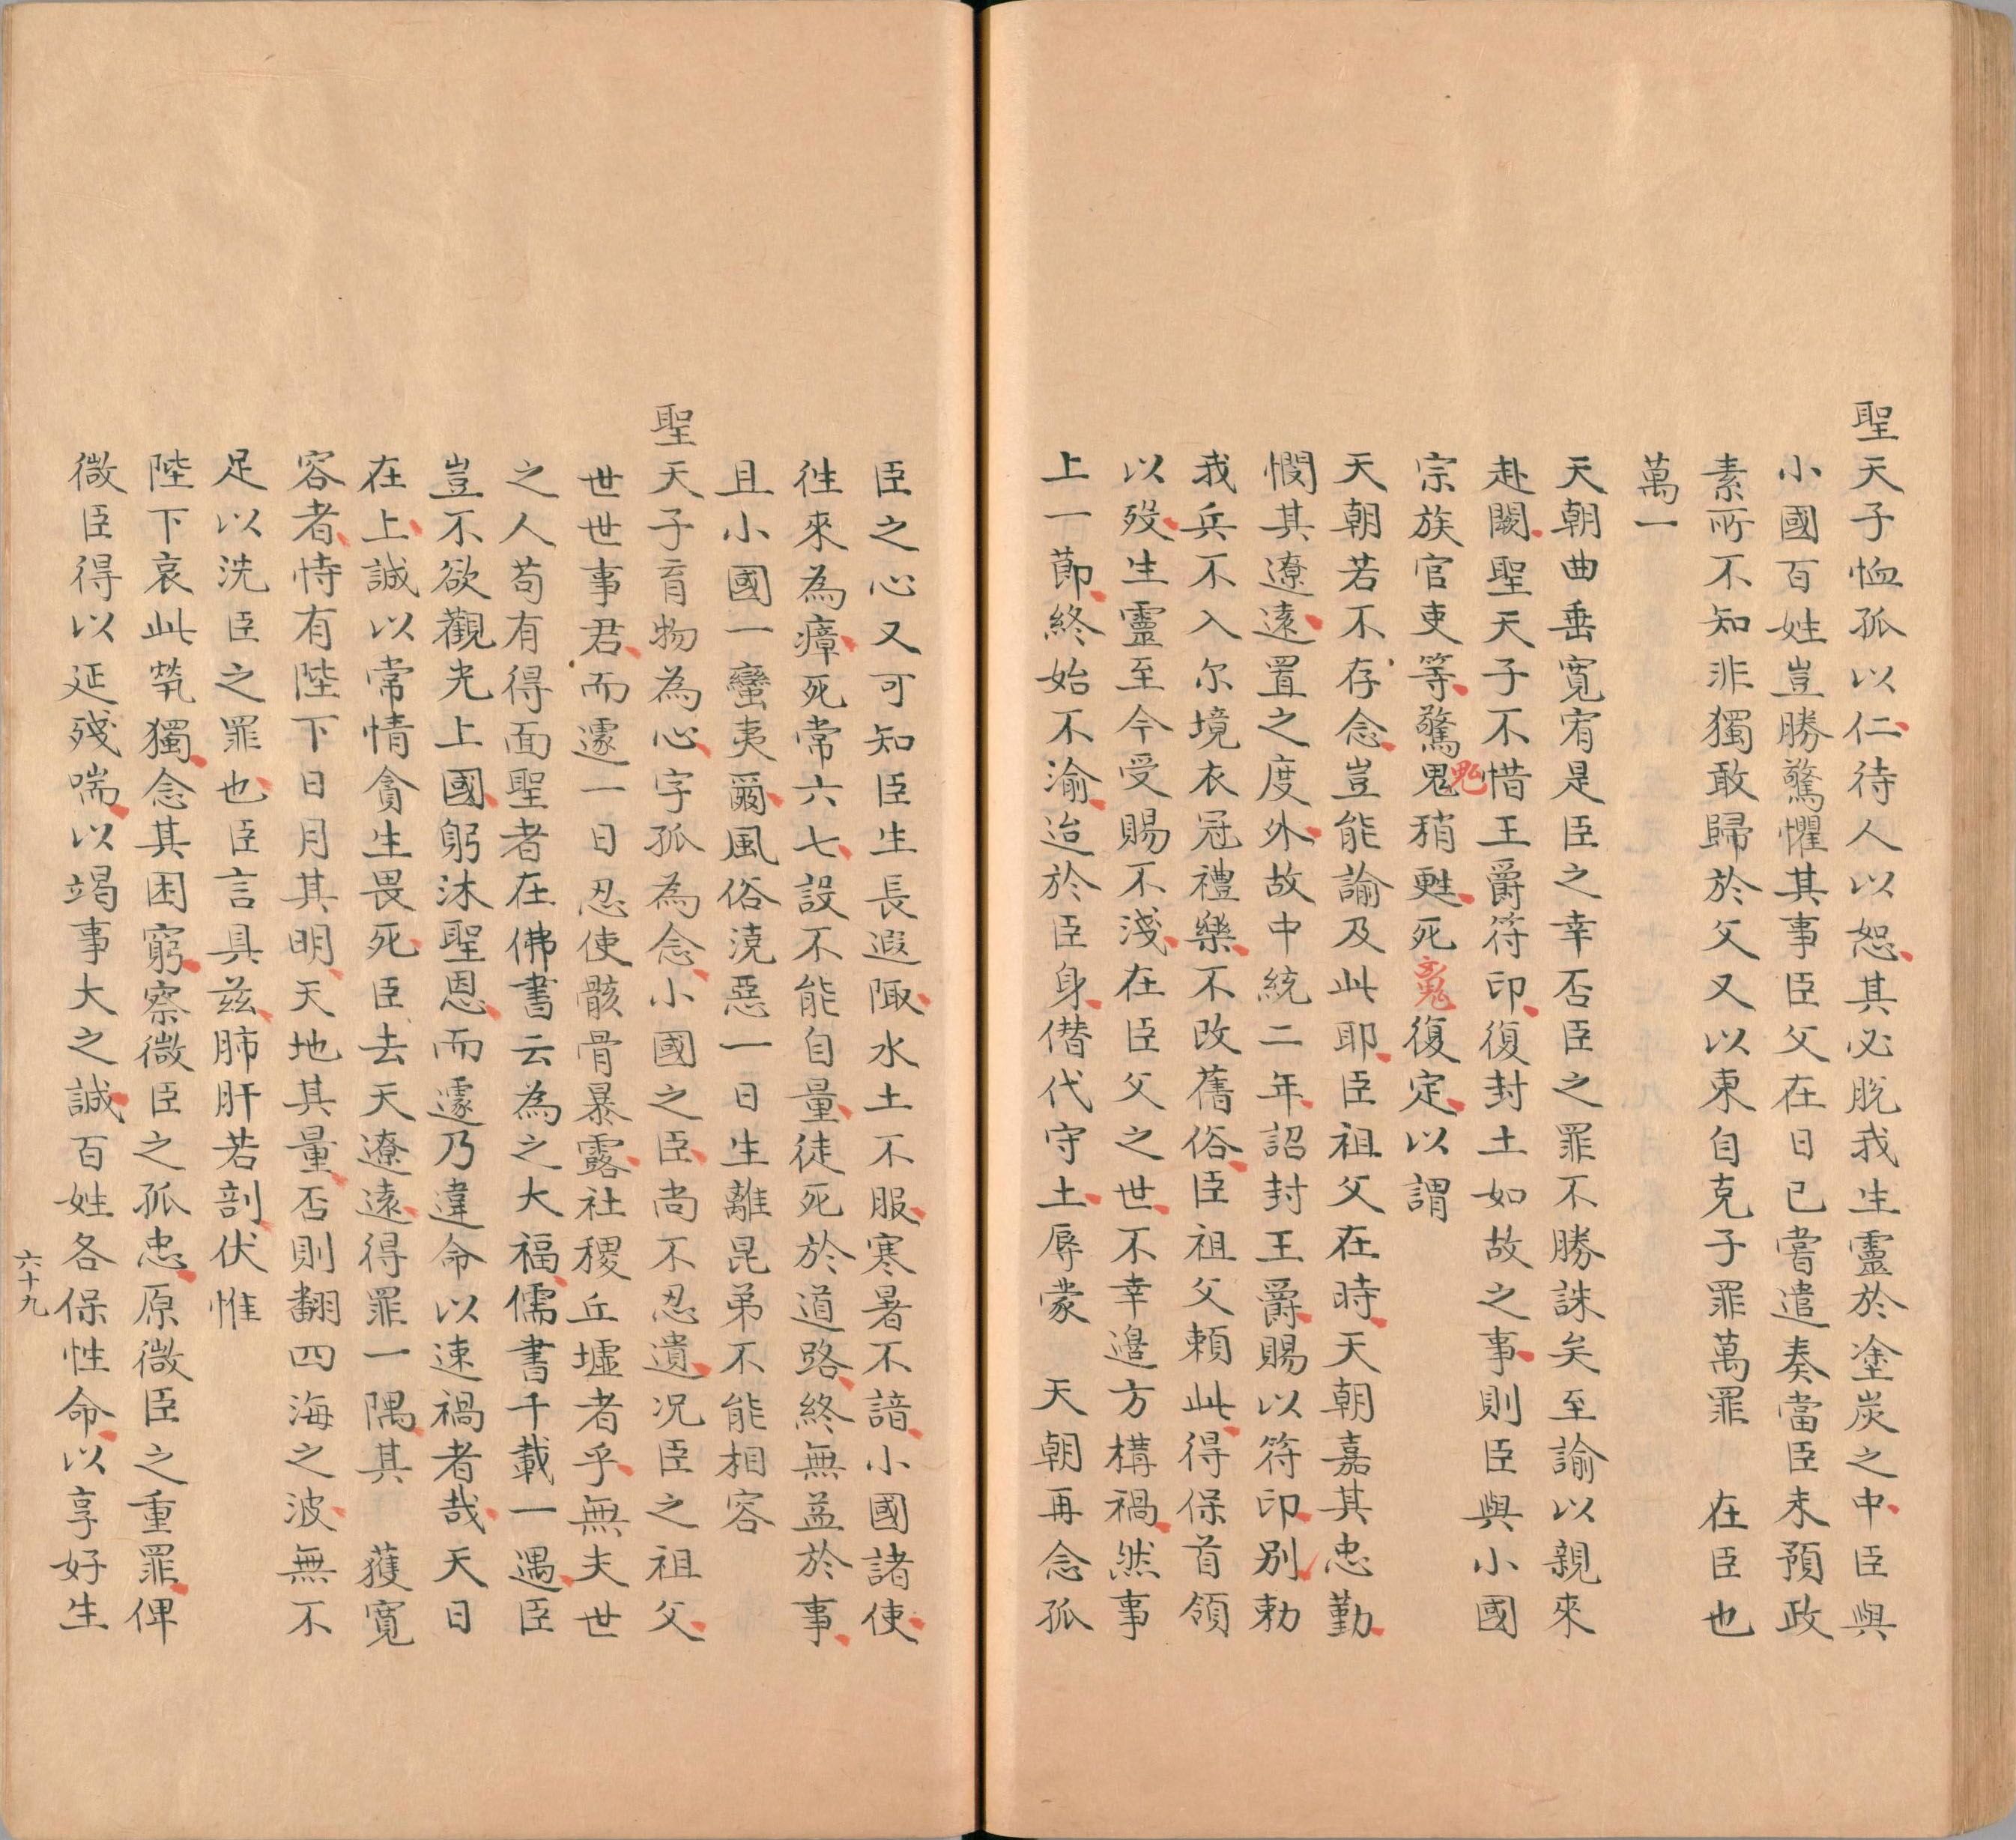 聖天子恤孤以仁待人以恕其必脫我生靈於塗炭之中臣與
小國百姓豈勝驚懼其事臣父在日已嘗遣奏當臣未預政
素所不知非獨敢歸於父又以東自克子罪萬罪 在臣也
萬一
天朝曲垂寬宥是臣之幸否臣之罪不勝誅矣至諭以親來
赴闕聖天子不惜王爵符印復封土如故之事則臣與小國
宗族官吏等驚鬼魂稍甦死魂復定以謂
天朝若不存念豈能諭及此耶臣祖父在時天朝嘉其忠勤
憫其遼遠置之度外故中統二年詔封王爵賜以符印別勅
我兵不入尔境衣冠禮樂不改舊俗臣祖父賴此得保首領
以歿生靈至今受賜不淺在臣父之世不幸邉方構禍然事
上一節終始不渝迨於臣身僭代守土辱蒙 天朝再念孤
臣之心又可知臣生長遐陬水土不服寒暑不諳小國諸使
徃來為瘴死常六七設不能自量徒死於道路終無益於事
且小國一蠻夷爾風俗澆惡一日生離昆弟不能相容
聖天子育物為心字孤為念小國之臣尚不忍遺况臣之祖父
世世事君而遽一日忍使骸骨暴露社稷丘墟者乎無夫世
之人苟有得面聖者在佛書云為之大福儒書千載一遇臣
豈不欲觀光上國躬沐聖恩而遽乃違命以速禍者哉天日
在上誠以常情貪生畏死臣去天遼遠得罪一隅其 獲寬
容者恃有陛下日月其明天地其量否則翻四海之波無不
足以洗臣之罪也臣言具兹肺肝若剖伏惟
陛下哀此煢獨念其困窮察微臣之孤忠原微臣之重罪俾
微臣得以延殘喘以竭事大之誠百姓各保性命以享好生
六十九